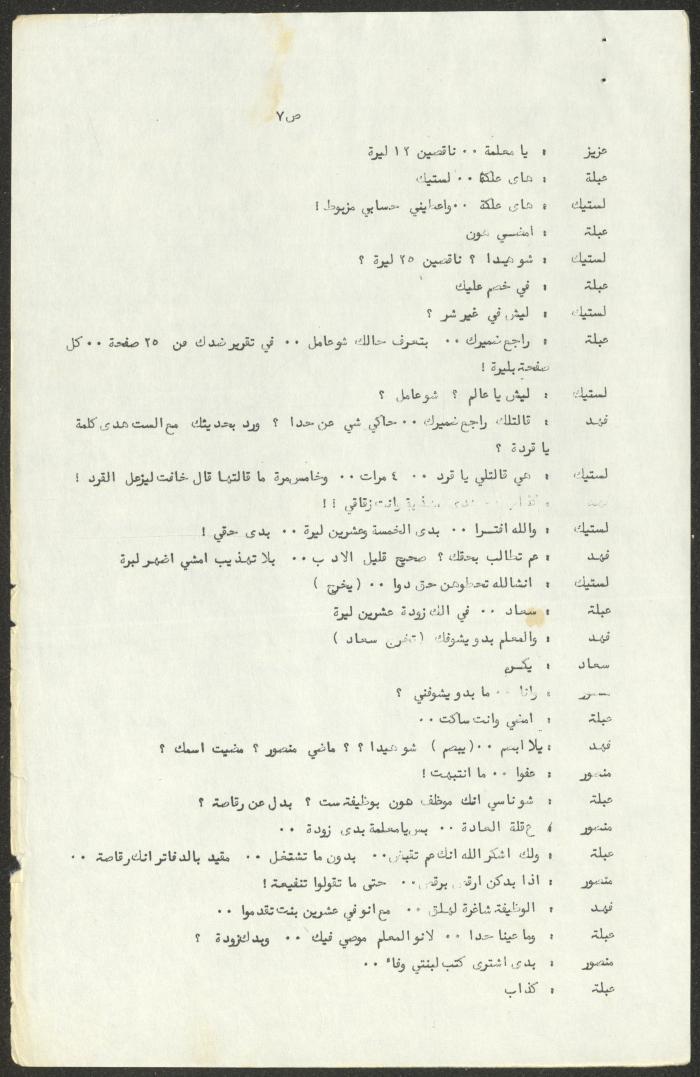 ص ٧
عزيز : يا معلمة ٠٠ ناقصين ١٢ ليرة
عبلة : هاى علكة ٠٠ لستيك
لستيك : هاى علكة ٠٠ واعطيني حسابي مزبوط !
عبلة : امضي هون
لستيك : شو هيدا ؟ ناقصين ٢٥ ليرة ؟
عبلة : في خصم عليك
لستيك : ليش في غير شر ؟
عبلة : راجع ضميرك ٠٠ بتعرف حالك شو عامل ٠٠ في تقرير ضدك من ٢٥ صفحة ٠٠ كل
صفحة بليرة !
لستيك : ليش يا عالم ؟ شو عامل ؟
فهد : قالتلك راجع ضميرك ٠٠ حاكي شي عن حدا ؟ ورد بحديثك مع الست هدى كلمة
يا قردة ؟
لستيك : هي قالتلي يا قرد ٠٠ ٤ مرات ٠٠ وخامس مرة ما قالتها قال خافت ليزعل القرد !
: وانت زقاقي ! !
لستيك : والله افترا ٠٠ بدى الخمسة وعشرين ليرة ٠٠ بدى حقي !
فهد : عم تطالب بحقك ؟ صحيح قليل الادب ٠٠ بلا تهذيب امشي اضهر لبرة
لستيك : انشالله تحطوهن حق دوا ٠٠ ( يخرج )
عبلة : سعاد ٠٠ في الك زودة عشرين ليرة
فهد : والمعلم بدو يشوفك ( تخرج سعاد )
سعاد : يكرم
منصور : وانا ٠٠ ما بدو يشوفني ؟
عبلة : امضي وانت ساكت ٠٠
فهد : يلا ابصم ٠٠ ( يبصم ) شو هيدا ؟ ؟ ماضي منصور ؟ مضيت اسمك ؟
منصور : عفوا ٠٠ ما انتبهت !
عبلة : شو ناسي انك موظف هون بوظيفة ست ؟ بدل عن رقاصة ؟
منصور : ع قلة العادة ٠٠ بس يا معلمة بدى زودة ٠٠
عبلة : ولك اشكر الله انك عم تقبض ٠٠ بدون ما تشتغل ٠٠ مقيد بالدفاتر انك رقاصة ٠٠
منصور : اذا بدكن ارقص برقص ٠٠ حتى ما تقولوا تنفيعة !
فهد : الوظيفة شاغرة لهلق ٠٠ مع انو في عشرين بنت تقدموا ٠٠
عبلة : وما عينا حدا ٠٠ لانو المعلم موصي فيك ٠٠ وبدك زودة ؟
منصور : بدى اشترى كتب لبنتي وفاء ٠٠
عبلة : كذاب